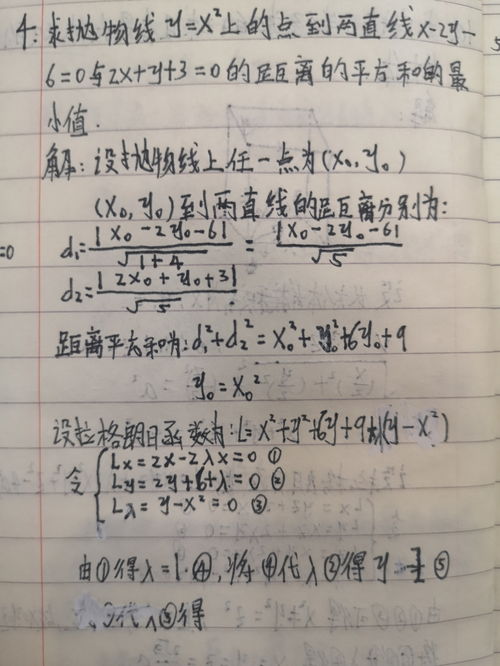 4. 求抛物线 y=x²上的点到两直线x-2y-
6=0与2x+y+3=0的距离的平方和的最
小值.
解:设抛物线上任一点为(x₀,y₀)
(x₀,y₀)到两直线的距离分别为:
=0
d₁=|x₀-2y₀-6|/√(1+4)=|x₀-2y₀-6|/√5
d₂=|2x₀+y₀+3|/√5.
距离平方和为:d₁²+d₂²=x₀²+y₀²+6y₀+9
y₀=x₀²
设拉格朗日函数为:L=x²+y²+6y+9+λ(y-x²)
令{Lx=2x-2λx=0 ①
Ly=2y+6+λ=0 ②
Lλ=y-x²=0 ③
由①得λ=1.④,将④代入②得y ⑤
代入③得